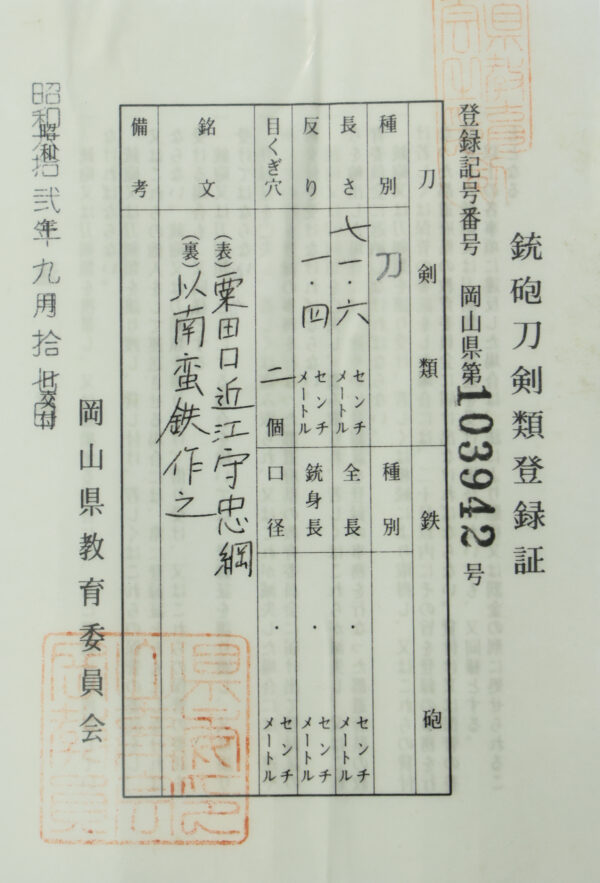 銃砲刀剣類登録証
登録記号番号 岡山県第103942号
刀剣類 鉄砲
種別 刀 種別
長さ 七一・六 センチメートル 全長 ・ センチメートル
反り 一・四 センチメートル 銃身長 ・ センチメートル
目くぎ穴 二 個 口径 ・ センチメートル
銘文 (表)粟田口近江守忠綱
(裏)以南蛮鉄作之
備考
昭和 年九月拾 日交付
岡山県教育委員会